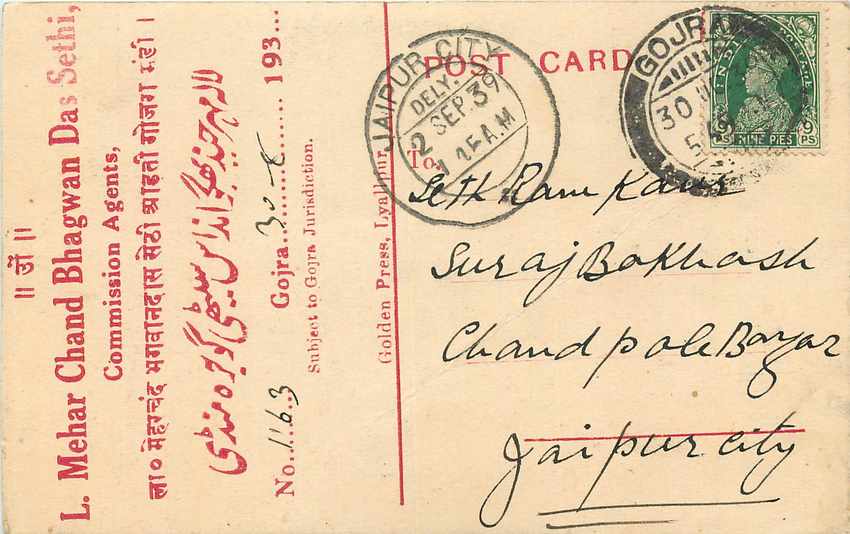 ॥ ओं ॥
L. Mehar Chand Bhagwan Das Sethi,
Commission Agents,
ला० मेहरचंद भगवानदास सेठी आढ़ती गोजरा मंडी।
لالہ مہرچند بھگوانداس سیٹھی گوجرہ منڈی
No. 1163 Gojra 30-8 193...
Subject to Gojra Jurisdiction.
Golden Press, Lyallpur.
POST CARD
JAIPUR CITY
DELY.
2 SEP. 39
A.M
GOJRA
30
INDIA POSTAGE
9 PS NINE PIES 9 PS
To,
Seth Ram
Suraj Bakhash
Chandpole Bazar
Jaipur city